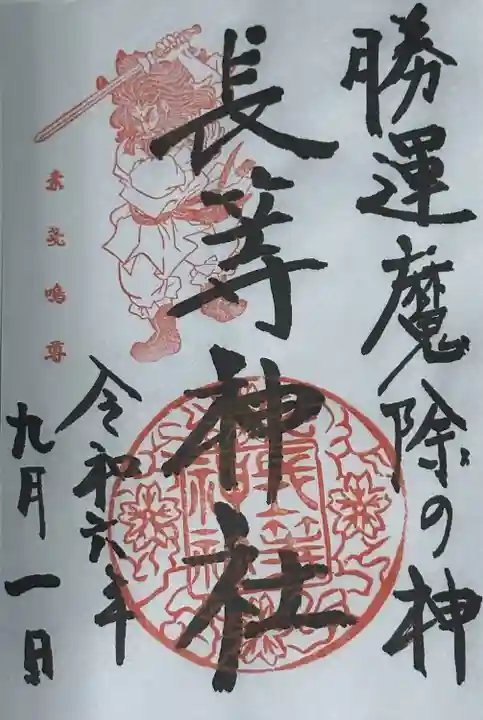 勝運魔除の神
長等神社
長等
神社
令和六年
九月一日
素戔嗚尊